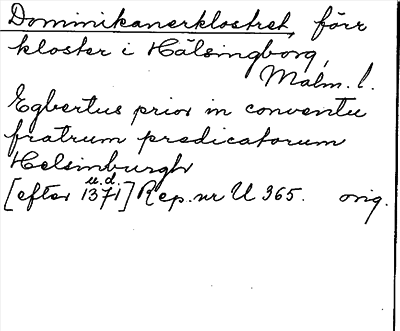 Dominikanerklostret, förr
kloster i Hälsingborg,
Malm. l.
Egbertus prior in conventu
fratrum predicatorum
Helsinburgh
u.d.
[efter 1371] Rep. nr U 365. orig.